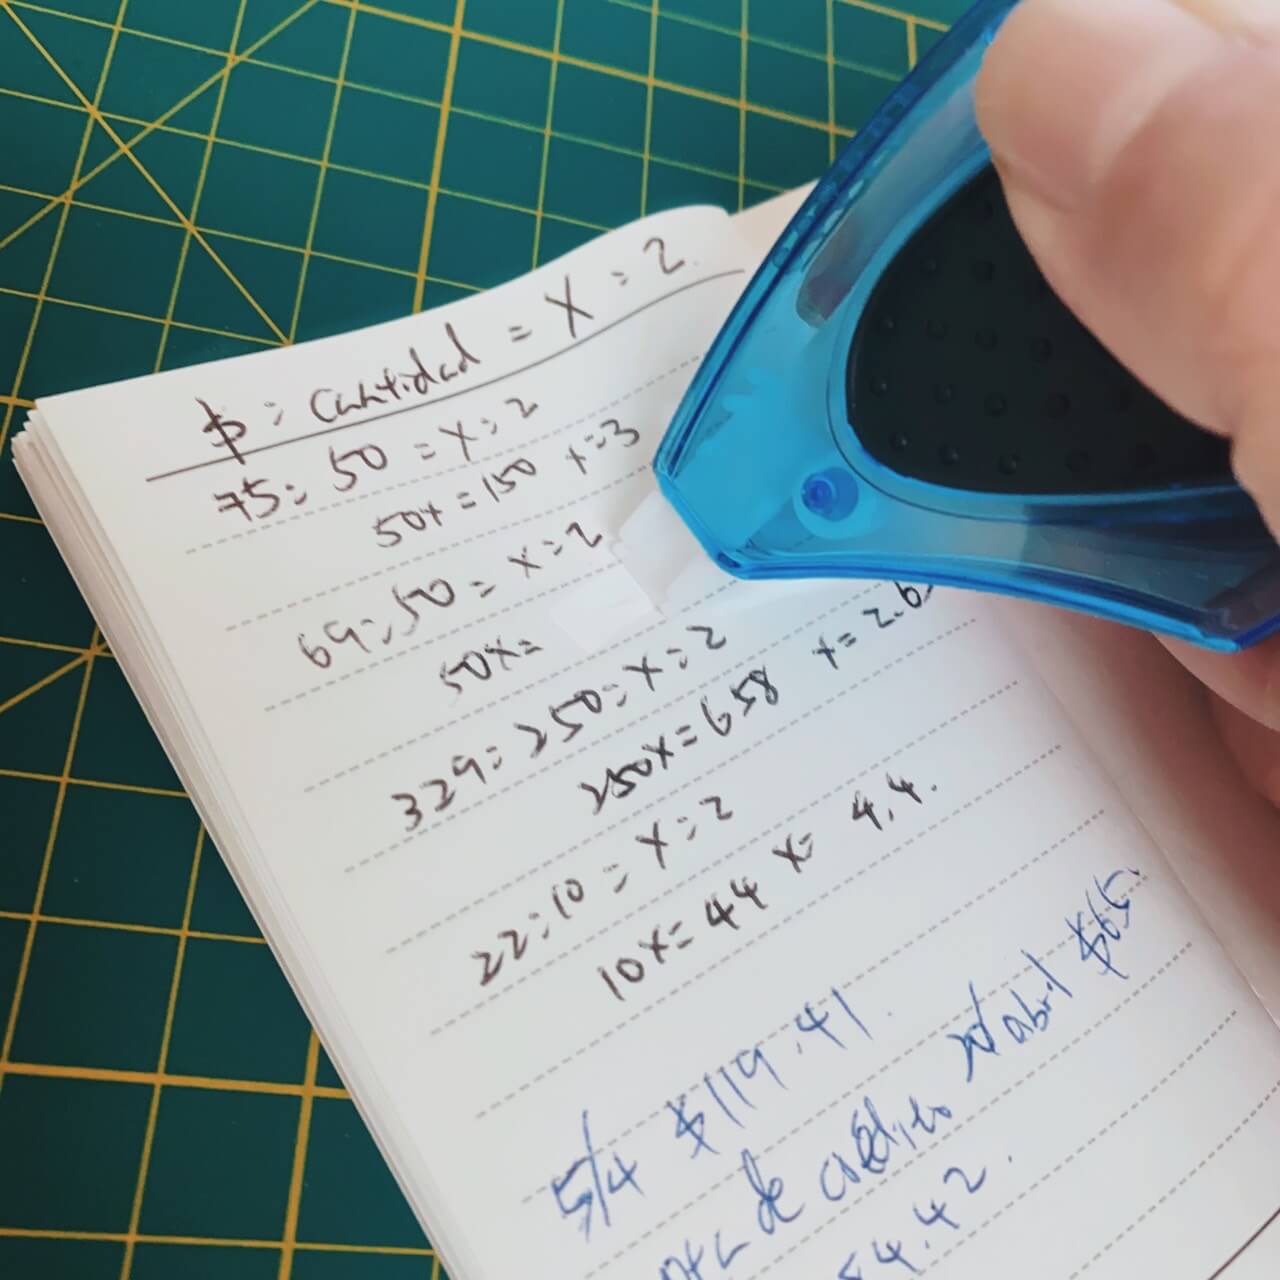 $ : cantidad = X : 2
75 : 50 = X : 2
50x = 150 x = 3
69 : 50 = x : 2
50x =
329 : 250 = x : 2
250x = 658 x = 2.6
22 : 10 = x : 2
10x = 44 x = 4.4.
5/4 $119.41.
de abril $65.
4.42.